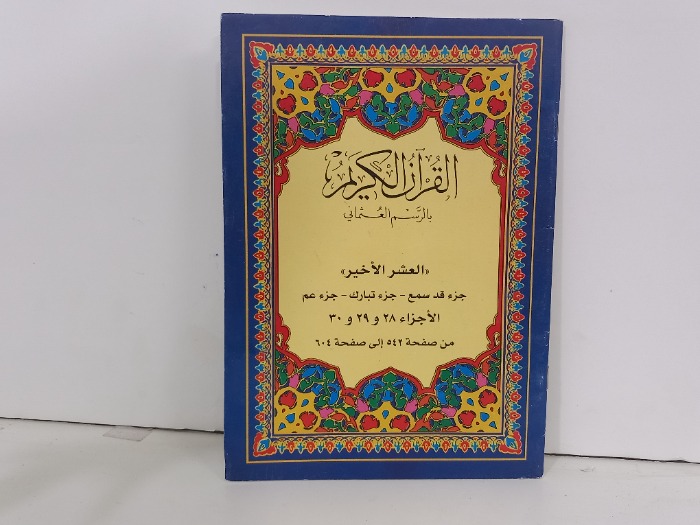 القُرآنُ الكَرِيمُ
بالرَّسْمِ العُثْمَاني
«العشر الأخير»
جزء قد سمع - جزء تبارك - جزء عم
الأجزاء ٢٨ و ٢٩ و ٣٠
من صفحة ٥٤٢ إلى صفحة ٦٠٤